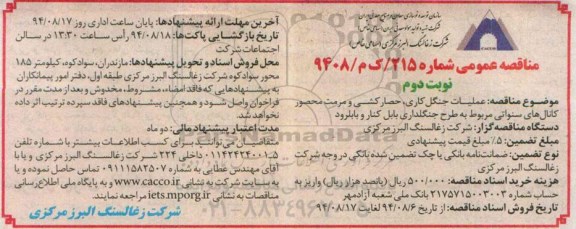 سازمان توسعه و نوسازی معادن و صنایع معدنی ایران
شرکت زغالسنگ البرز مرکزی (سهامی خاص)
مناقصه عمومی شماره ۲۱۵/ک م/۹۴۰۸
نوبت دوم
موضوع مناقصه: عملیات جنگل کاری، حصارکشی و مرمت محصور
کانال‌های سنواتی مربوط به طرح جنگلداری بابل کنار و بابلرود
دستگاه مناقصه‌گزار: شرکت زغالسنگ البرز مرکزی
مبلغ تضمین: ۵٪ مبلغ قیمت پیشنهادی
نوع تضمین: ضمانت‌نامه بانکی یا چک تضمین شده بانکی در وجه شرکت
زغالسنگ البرز مرکزی
هزینه خرید اسناد مناقصه: ۵۰۰/۰۰۰ ریال (پانصد هزار ریال) واریز به
حساب شماره ۲۱۷۵۷۱۵۰۰۳۰۰۳ بانک ملی شعبه آزادمهر
تاریخ فروش اسناد مناقصه: از تاریخ ۹۴/۰۸/۶ لغایت ۹۴/۰۸/۱۷
آخرین مهلت ارائه پیشنهادها: پایان ساعت اداری روز ۹۴/۰۸/۱۷
تاریخ بازگشایی پاکت‌ها: ۹۴/۰۸/۱۸ رأس ساعت ۱۳:۳۰ در سالن
اجتماعات شرکت
محل فروش اسناد و تحویل پیشنهادها: مازندران، سوادکوه، کیلومتر ۱۸۵
محور سوادکوه شرکت زغالسنگ البرز مرکزی طبقه اول، دفتر امور پیمانکاران
به پیشنهادهایی که فاقد امضاء، مشروط، مخدوش و بعد از مدت مقرر در
فراخوان واصل شود و همچنین پیشنهادهای فاقد سپرده ترتیب اثر داده
نخواهد شد.
مدت اعتبار پیشنهاد مالی: دو ماه
متقاضیان می‌توانند برای کسب اطلاعات بیشتر با شماره تلفن
۰۱۱۴۲۴۲۴۰۰۱-۵ داخلی ۲۲۴ شرکت زغالسنگ البرز مرکزی و یا با
آقای مهندس عطایی به شماره ۰۹۱۱۱۵۸۲۵۰۷ تماس حاصل نموده و یا
به سایت شرکت به نشانی www.cacco.ir و به پایگاه ملی اطلاع‌رسانی
مناقصات به نشانی iets.mporg.ir مراجعه نمایند.
شرکت زغالسنگ البرز مرکزی